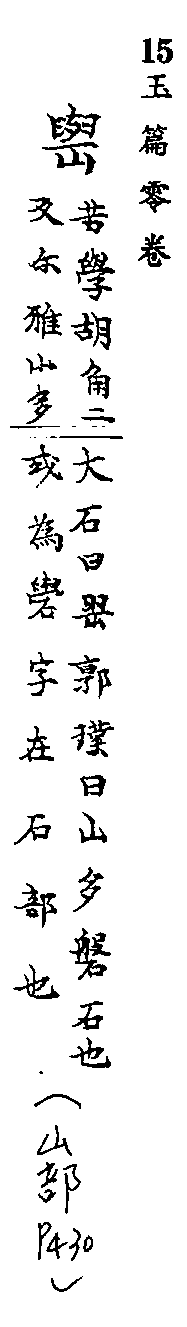 15玉篇零卷
嶨
苦學胡角二
反尒雅山多
大石曰嶨郭璞曰山多礐石也
或為礐字在石部也
(山部
P430)